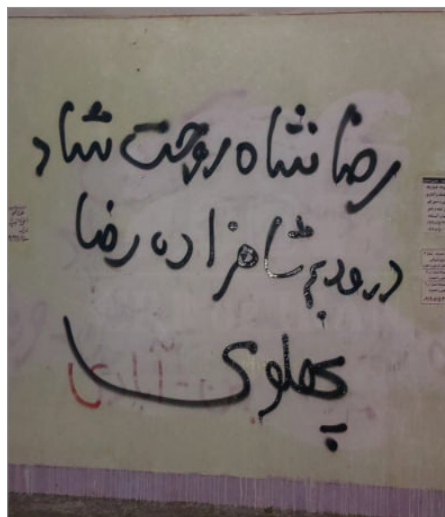 رضا شاه روحت شاد
درود بر شاهزاده رضا
پهلوی